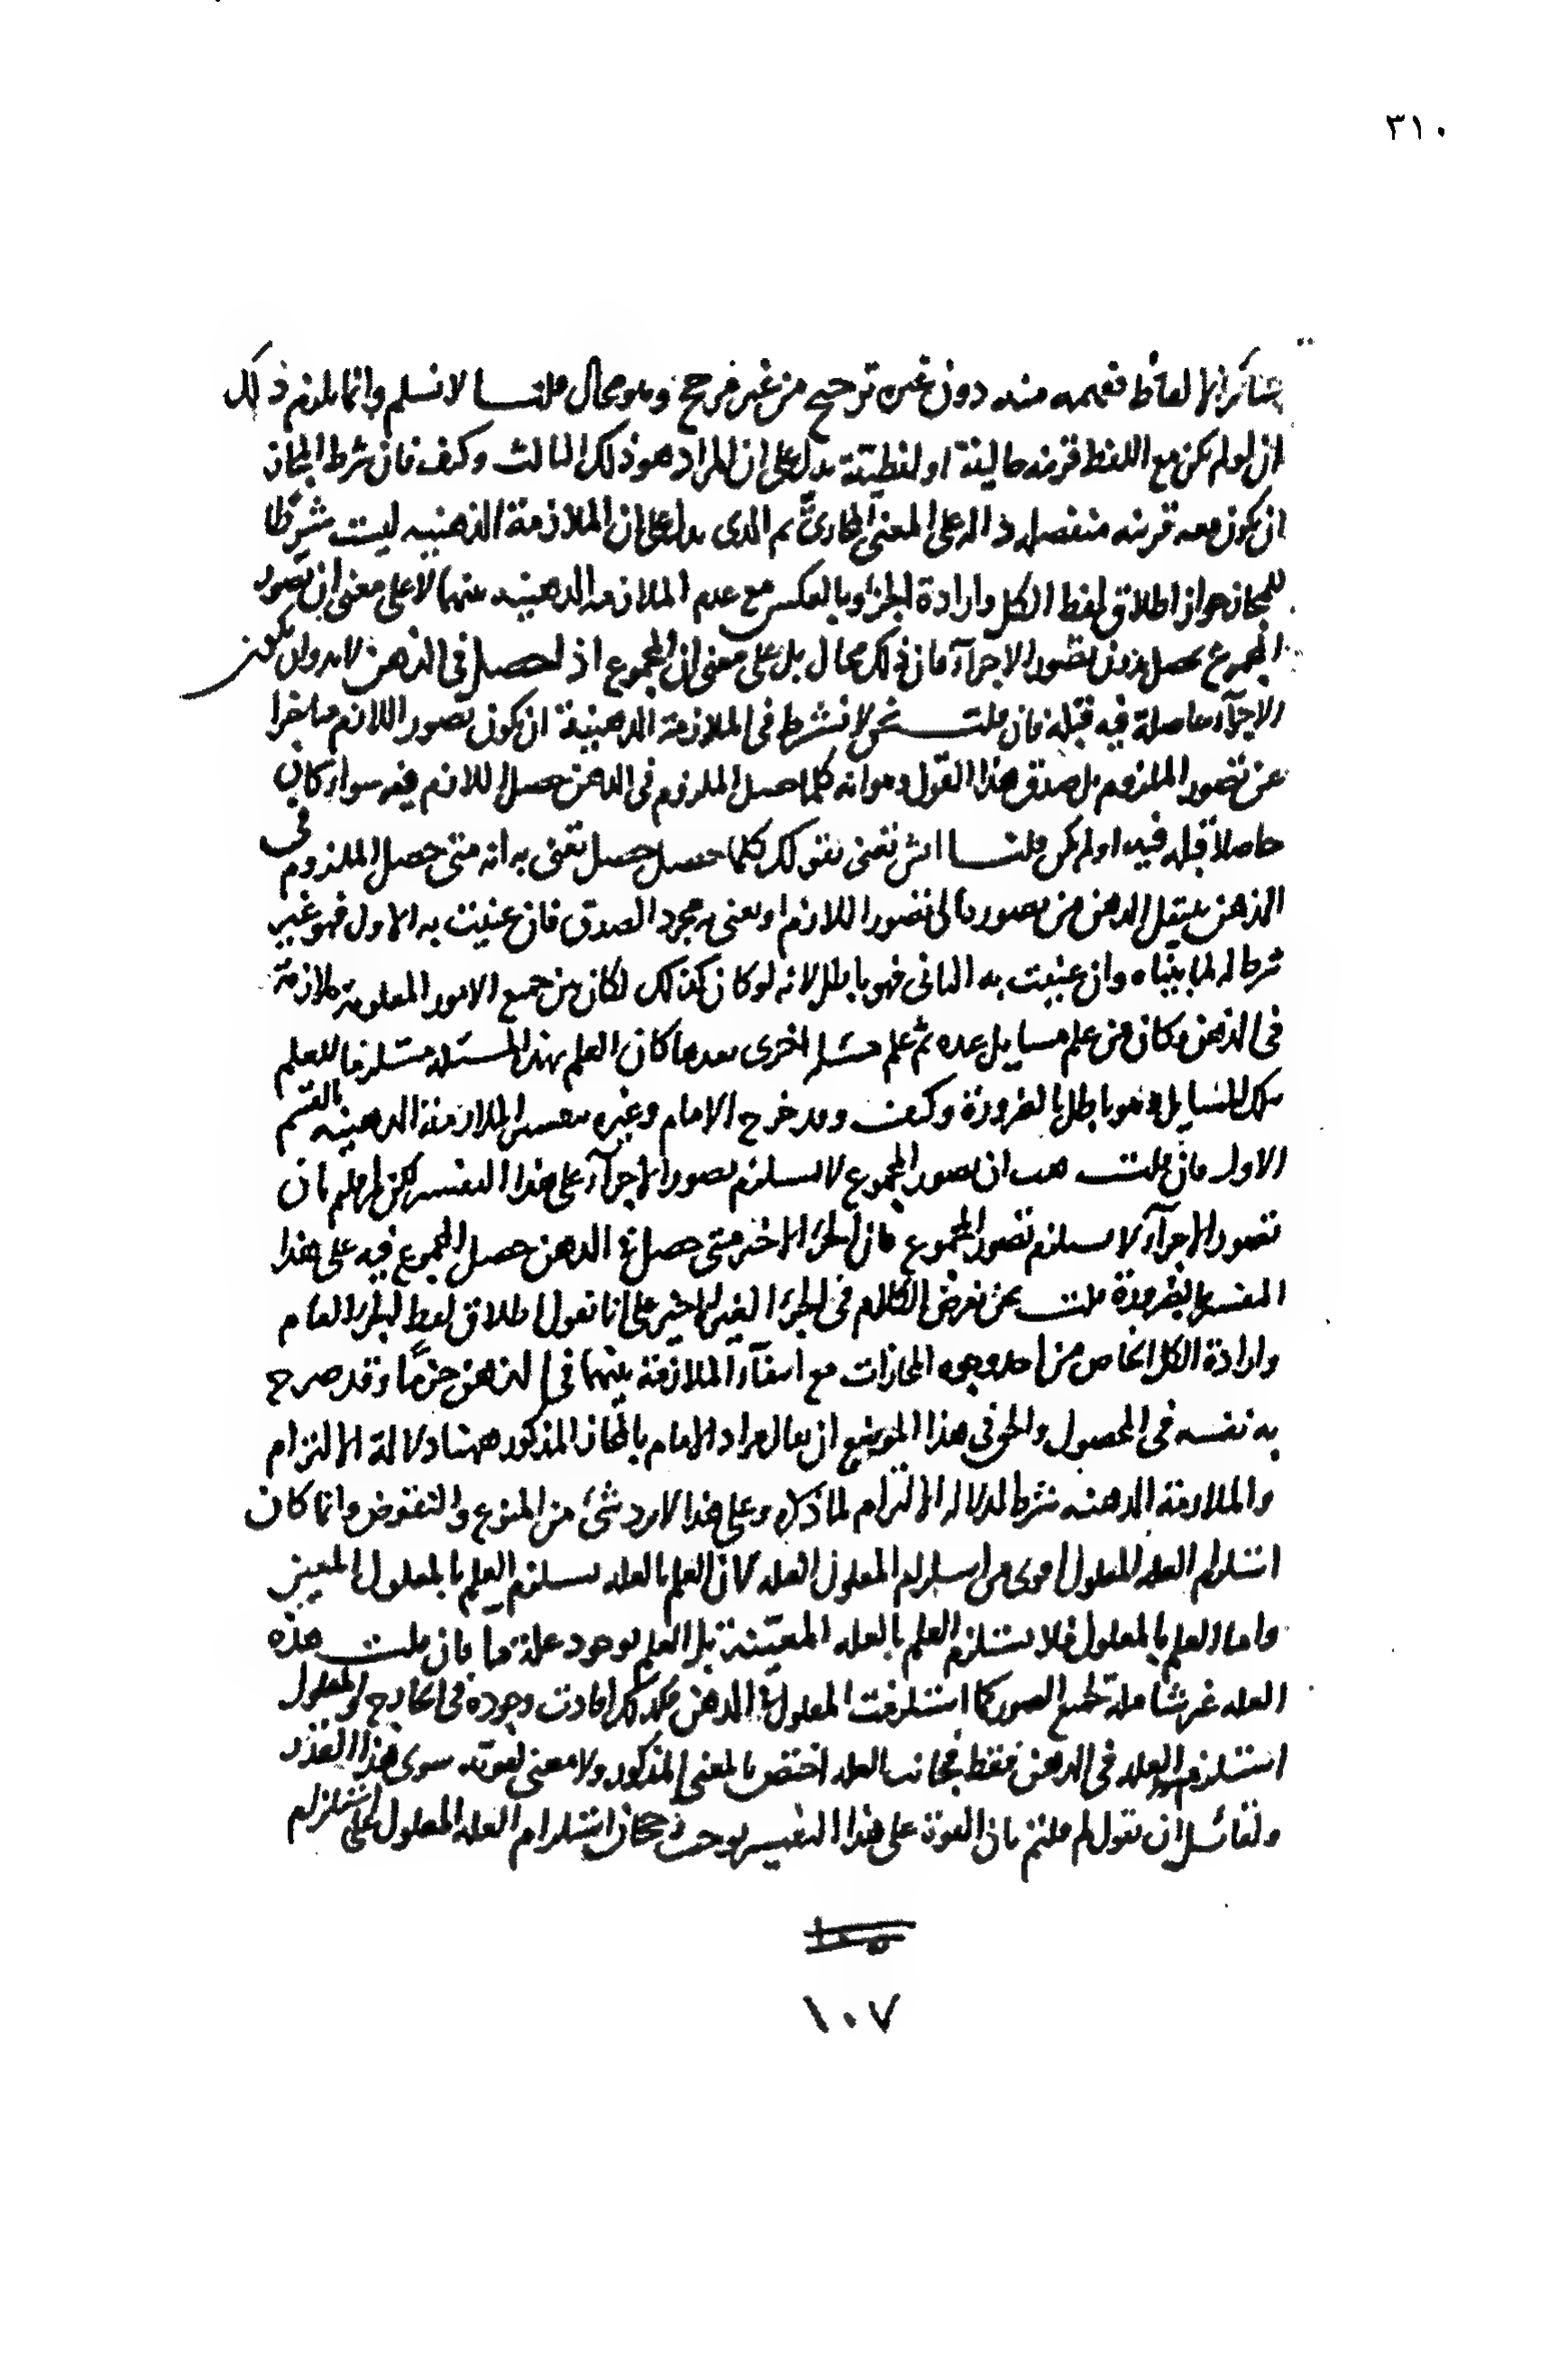 ٣١٠
سائر الالفاظ ففهمه منه دون غيره ترجيح من غير مرجح وهو محال قلنا لا نسلم وانما يلزم ذلك
ان لو لم يكن مع اللفظ قرينه حالية او لفظيتة يدل على ان المراد هو ذلك الثالث وكيف فان شرط المجاز
ان يكون معه قرينه منفصله داله على المعنى المجازى ثم الذى يدل على ان الملازمة الذهنيه ليست شرطا
للمجاز جواز اطلاق لفظ الكل وارادة الجزء وبالعكس مع عدم الملازمه الذهنيه بينهما لا على معنى ان تصور
المجموع يحصل بدون تصور الاجزآء فان ذلك محال بل على معنى ان المجموع اذا حصل فى الذهن لا بد وان يكون
الاجزآء حاصلة فيه قبله فان قلت نحن لا نشترط فى الملازمة الذهنية ان يكون تصور اللازم متاخرا
عن تصور الملزوم بل صدق هذا القول وهو انه كلما حصل الملزوم فى الذهن حصل اللازم فيه سواء كان
حاصلا قبله فيه او لم يكن قلنا ايش تعنى بقولك كلما حصل حصل تعنى به انه متى حصل الملزوم فى
الذهن ينتقل الذهن من تصوره الى تصور اللازم او تعنى به مجرد الصدق فان عنيت به الاول فهو غير
شرط له لما بيناه وان عنيت به الثانى فهو باطل لانه لو كان كذلك لكان بين جميع الامور المعلومة ملازمة
فى الذهن وكان من علم مسايل عده ثم علم مسئلة اخرى بعدها كان العلم بهذه المسئله مستلزما للعلم
بتلك المسايل وهو باطل بالضرورة وكيف وقد خرج الامام وغيره بتفسير الملازمة الذهنيه بالقسم
الاول فان قلت هب ان تصور المجموع لا يستلزم تصور الاجزآء على هذا التفسير لكن لم قلتم بان
تصور الاجزآء لا يستلزم تصور المجموع فان الجزء الاخير متى حصل فى الذهن حصل المجموع فيه على هذا
التفسير بالضرورة قلت نحن نفرض الكلام فى الجزء الغير الاخير على انا نقول اطلاق لفظ الجزء العام
وارادة الكل الخاص من احد وجوه المجازات مع انتفآء الملازمة بينهما فى الذهن جزما وقد صرح
به نفسه فى المحصول والحق فى هذا الموضع ان يقال مراد الامام بالمجاز المذكور ههنا دلالة الالتزام
والملازمة الذهنيه شرط لدلاله الالتزام لما ذكره وعلى هذا لا يرد شئ من المنوع والنقوض وانما كان
استلزام العله للمعلول اقوى من استلزام المعلول العله لان العلم بالعله يستلزم العلم بالمعلول المعين
واما العلم بالمعلول فلا يستلزم العلم بالعله المعيّنة بل العلم بوجود علة ما فان قلت هذه
العله غير شاملة لجميع الصور كما استلزمت المعلول فى الذهن فكذلك افادت وجوده فى الخارج والمعلول
استلزم العله فى الذهن فقط فجانب العله اختص بالمعنى المذكور ولا معنى لقوته سوى هذا القدر
ولقائل ان يقول لم قلتم بان القوة على هذا التفسير يوجب رجحان استلزام العله المعلول على استلزام
١٠٧